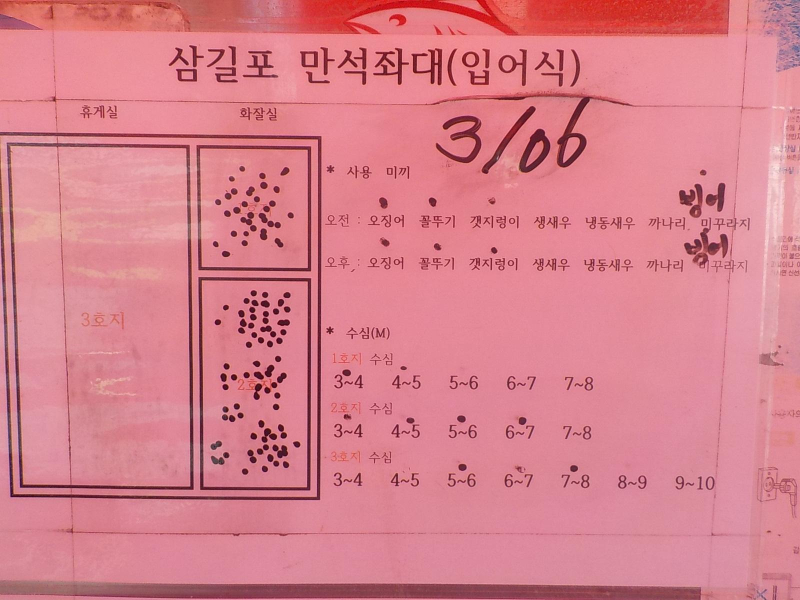 삼길포 만석좌대(입어식)
휴게실 화잘실
3/06
* 사용 미끼
빙어
오전 : 오징어 꼴뚜기 갯지렁이 생새우 냉동새우 까나리 미꾸라지
빙어
오후 : 오징어 꼴뚜기 갯지렁이 생새우 냉동새우 까나리 미꾸라지
3호지
* 수심(M)
1호지 수심
3~4 4~5 5~6 6~7 7~8
2호지 수심
3~4 4~5 5~6 6~7 7~8
3호지 수심
3~4 4~5 5~6 6~7 7~8 8~9 9~10